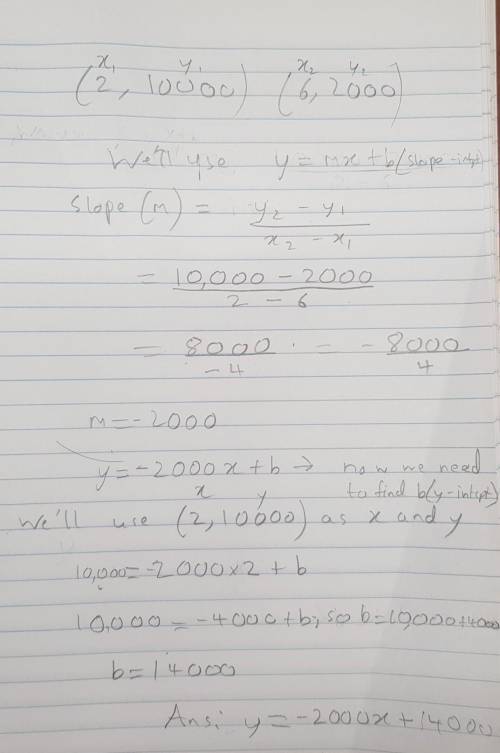 x₁ y₁ x₂ y₂
(2, 10000) (6, 2000)
We'll use y = mx + b (slope-intpt)
Slope (m) = y₂ - y₁ / x₂ - x₁
= 10,000 - 2000 / 2 - 6
= 8000 / -4 = - 8000 / 4
m = -2000
y = -2000x + b → now we need
to find b (y-intcpt)
x y
We'll use (2, 10000) as x and y
10,000 = -2000 × 2 + b
10,000 = -4000 + b, so b = 10,000 + 4000
b = 14000
Ans: y = -2000x + 14000